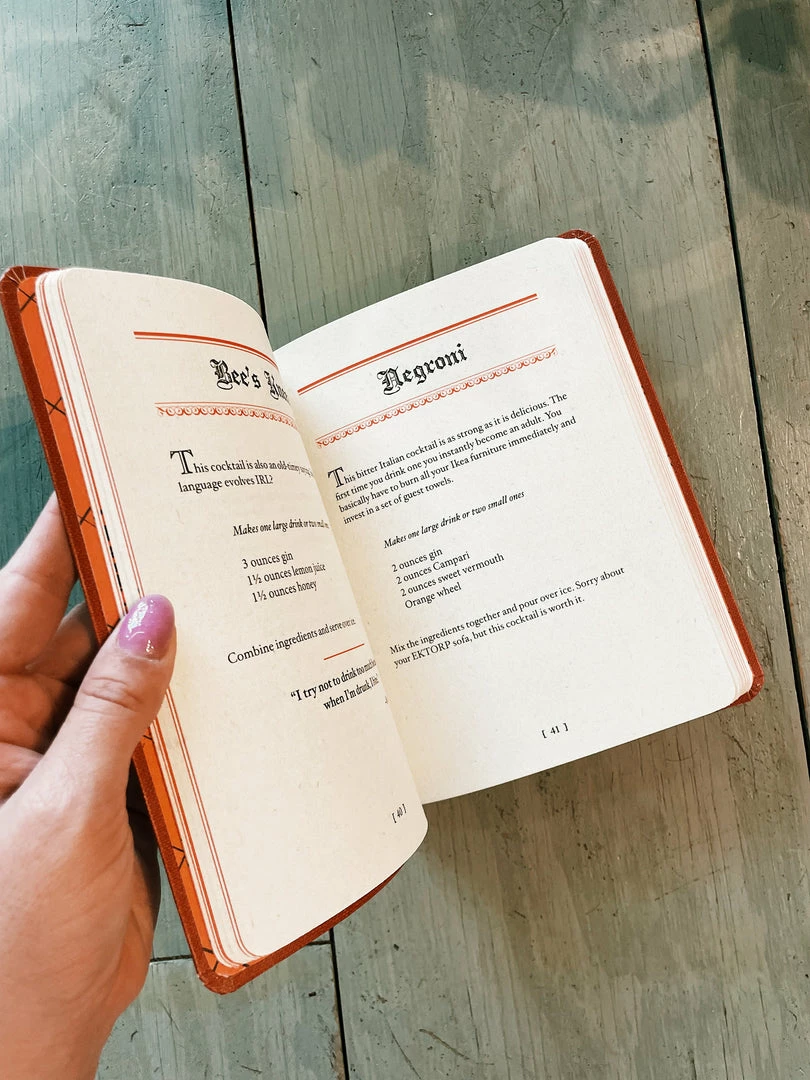 Bee's
This cocktail is also an old-timey
language evolves IRL?
Makes one large drink or two small
3 ounces gin
1½ ounces lemon juice
1½ ounces honey
Combine ingredients and serve over
"I try not to drink too
when I'm drunk, I
[ 40 ]
Negroni
This bitter Italian cocktail is as strong as it is delicious. The
first time you drink one you instantly become an adult. You
basically have to burn all your Ikea furniture immediately and
invest in a set of guest towels.
Makes one large drink or two small ones
2 ounces gin
2 ounces Campari
2 ounces sweet vermouth
Orange wheel
Mix the ingredients together and pour over ice. Sorry about
your EKTORP sofa, but this cocktail is worth it.
[ 41 ]